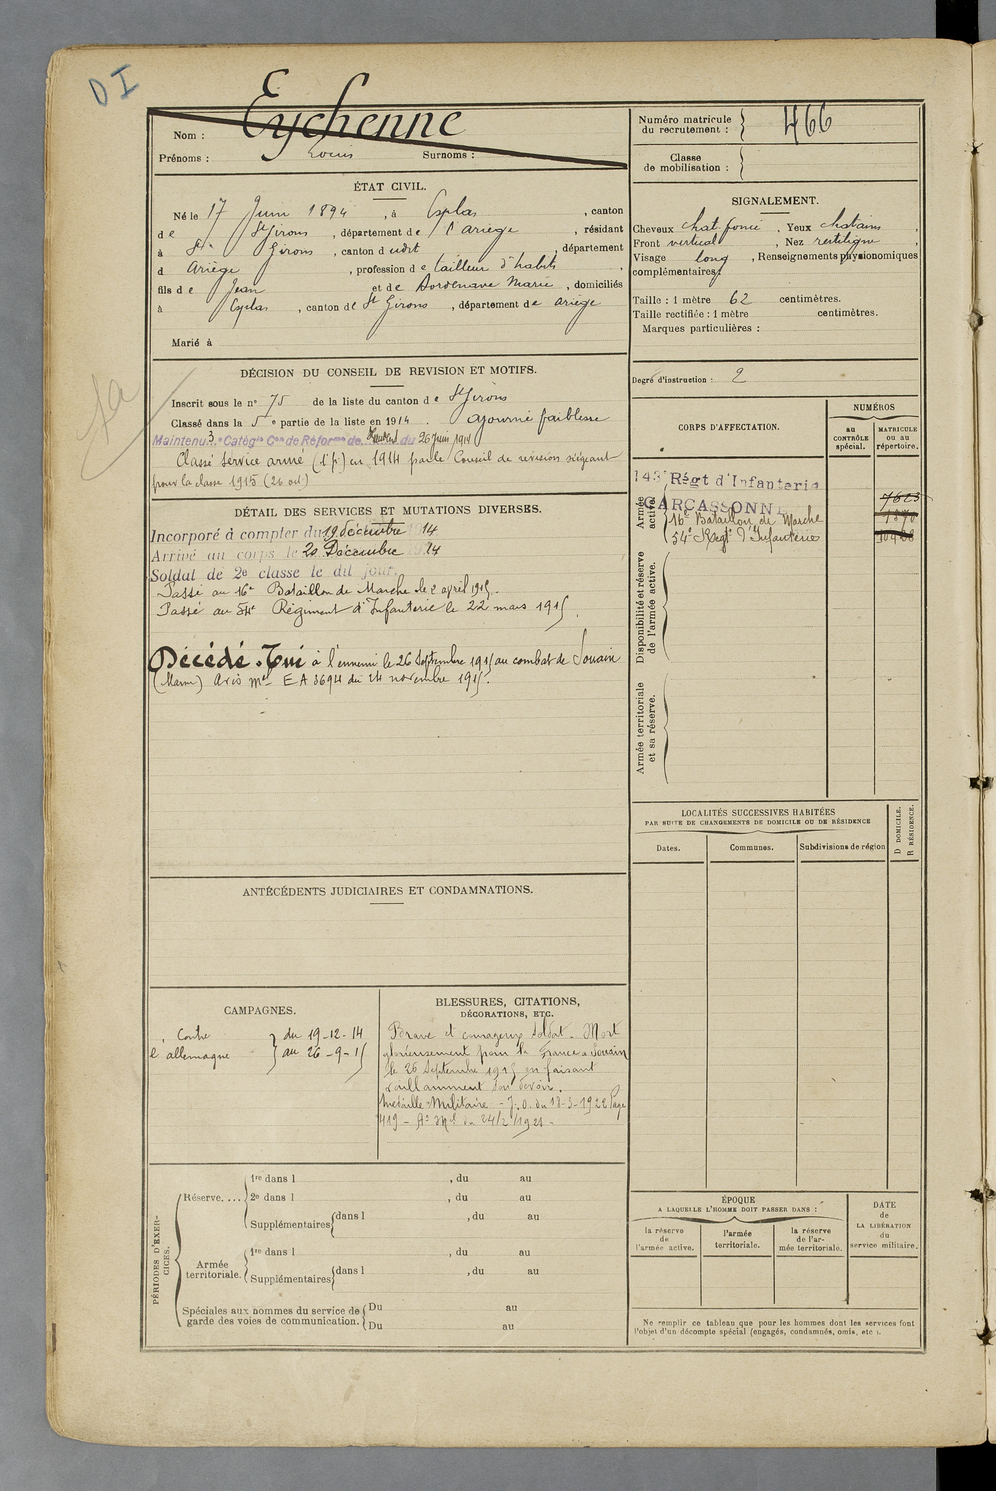 DI
Nom : Eychenne
Prénoms : Louis Surnoms :
Numéro matricule du recrutement : 466
Classe de mobilisation :
ÉTAT CIVIL.
Né le 17 Juin 1894, à Esplas, canton
de St Girons, département de l'Ariège, résidant
à St Girons, canton dudit, département
d Ariège, profession de tailleur d'habits,
fils de Jean et de Dordenave Marie, domiciliés
à Esplas, canton de St Girons, département de ariège
Marié à
SIGNALEMENT.
Cheveux chat. foncé. Yeux chatains,
Front vertical, Nez rectiligne,
Visage long, Renseignements physionomiques
complémentaires:
Taille : 1 mètre 62 centimètres.
Taille rectifiée : 1 mètre centimètres.
Marques particulières :
Degré d'instruction : 2
DÉCISION DU CONSEIL DE REVISION ET MOTIFS.
Inscrit sous le n° 75 de la liste du canton de St Girons
Classé dans la 5e partie de la liste en 1914. ajourné faiblesse
Maintenu 3e Catégie Con de Réforme de du 26 Juin 1914
Classé service armé (1e p) en 1914 par le Conseil de révision siégeant
pour la classe 1915 (26 oct)
CORPS D'AFFECTATION.
NUMÉROS
au CONTRÔLE spécial.
MATRICULE ou au répertoire.
Armée active.
143e Régt d'Infanterie
CARCASSONNE
7623
16e Bataillon de Marche 1370
54e Regt d'Infanterie
Disponibilité et réserve de l'armée active.
Armée territoriale et sa réserve.
DÉTAIL DES SERVICES ET MUTATIONS DIVERSES.
Incorporé à compter du 19 décembre 1914
Arrivé au corps le 20 Décembre 1914
Soldat de 2e classe le dit jour.
Passé au 16e Bataillon de Marche le 2 april 1915.
Passé au 54e Régiment d'Infanterie le 22 mars 1915.
Décédé. Tué à l'ennemi le 26 Septembre 1915 au combat de Souain
(Marne) Avis mel EA 3694 du 24 novembre 1915.
LOCALITÉS SUCCESSIVES HABITÉES
PAR SUITE DE CHANGEMENTS DE DOMICILE OU DE RÉSIDENCE
Dates.
Communes.
Subdivisions de région
D DOMICILE.
R RÉSIDENCE.
ANTÉCÉDENTS JUDICIAIRES ET CONDAMNATIONS.
CAMPAGNES.
Contre
l'allemagne
du 19-12-14
au 26-9-15
BLESSURES, CITATIONS,
DÉCORATIONS, ETC.
Brave et courageux Soldat. Mort
glorieusement pour la France à Souain
le 26 Septembre 1915 en faisant
vaillamment son devoir.
Médaille Militaire - J.O. du 18-3-1922 Page
419 -
PÉRIODES D'EXERCICES.
Réserve....
1re dans l , du au
2e dans l , du au
Supplémentaires dans l , du au
du au
Armée territoriale.
1re dans l , du au
Supplémentaires dans l , du au
Spéciales aux hommes du service de garde des voies de communication.
Du au
Du au
ÉPOQUE
A LAQUELLE L'HOMME DOIT PASSER DANS :
la réserve de l'armée active.
l'armée territoriale.
la réserve de l'armée territoriale.
DATE
de
LA LIBÉRATION
du
service militaire.
Ne remplir ce tableau que pour les hommes dont les services font
l'objet d'un décompte spécial (engagés, condamnés, omis, etc.).